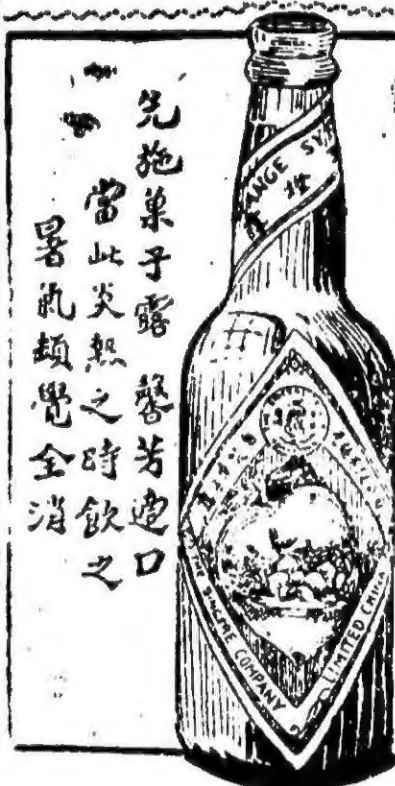 先施菓子露 馨芳適口
當此炎熱之時飲之
暑氣頓覺全消
ANGE SY
THE SINCERE COMPANY
LIMITED CHINA